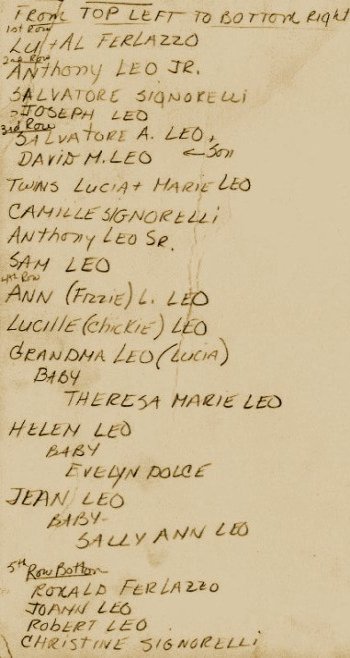 FROM TOP LEFT TO BOTTOM Right
1st Row
LU + AL FERLAZZO
2nd Row
ANthony LEO JR.
SALVATORE SIGNORELLI
JOSEPH LEO
3rd Row
SALVATORE A. LEO,
DAVID M. LEO ← Son
TWINS LUCIA + MARIE LEO
CAMILLE SIGNORELLI
ANthony LEO SR.
SAM LEO
4th Row
ANN (FIZZIE) L. LEO
LUCILLE (chickie) LEO
GRANDMA LEO (LUCIA)
BABY
THERESA MARIE LEO
HELEN LEO
BABY
EVELYN DOLCE
JEAN LEO
BABY-
SALLY ANN LEO
5th Row Bottom
RONALD FERLAZZO
JOANN LEO
ROBERT LEO
CHRISTINE SIGNORELLI